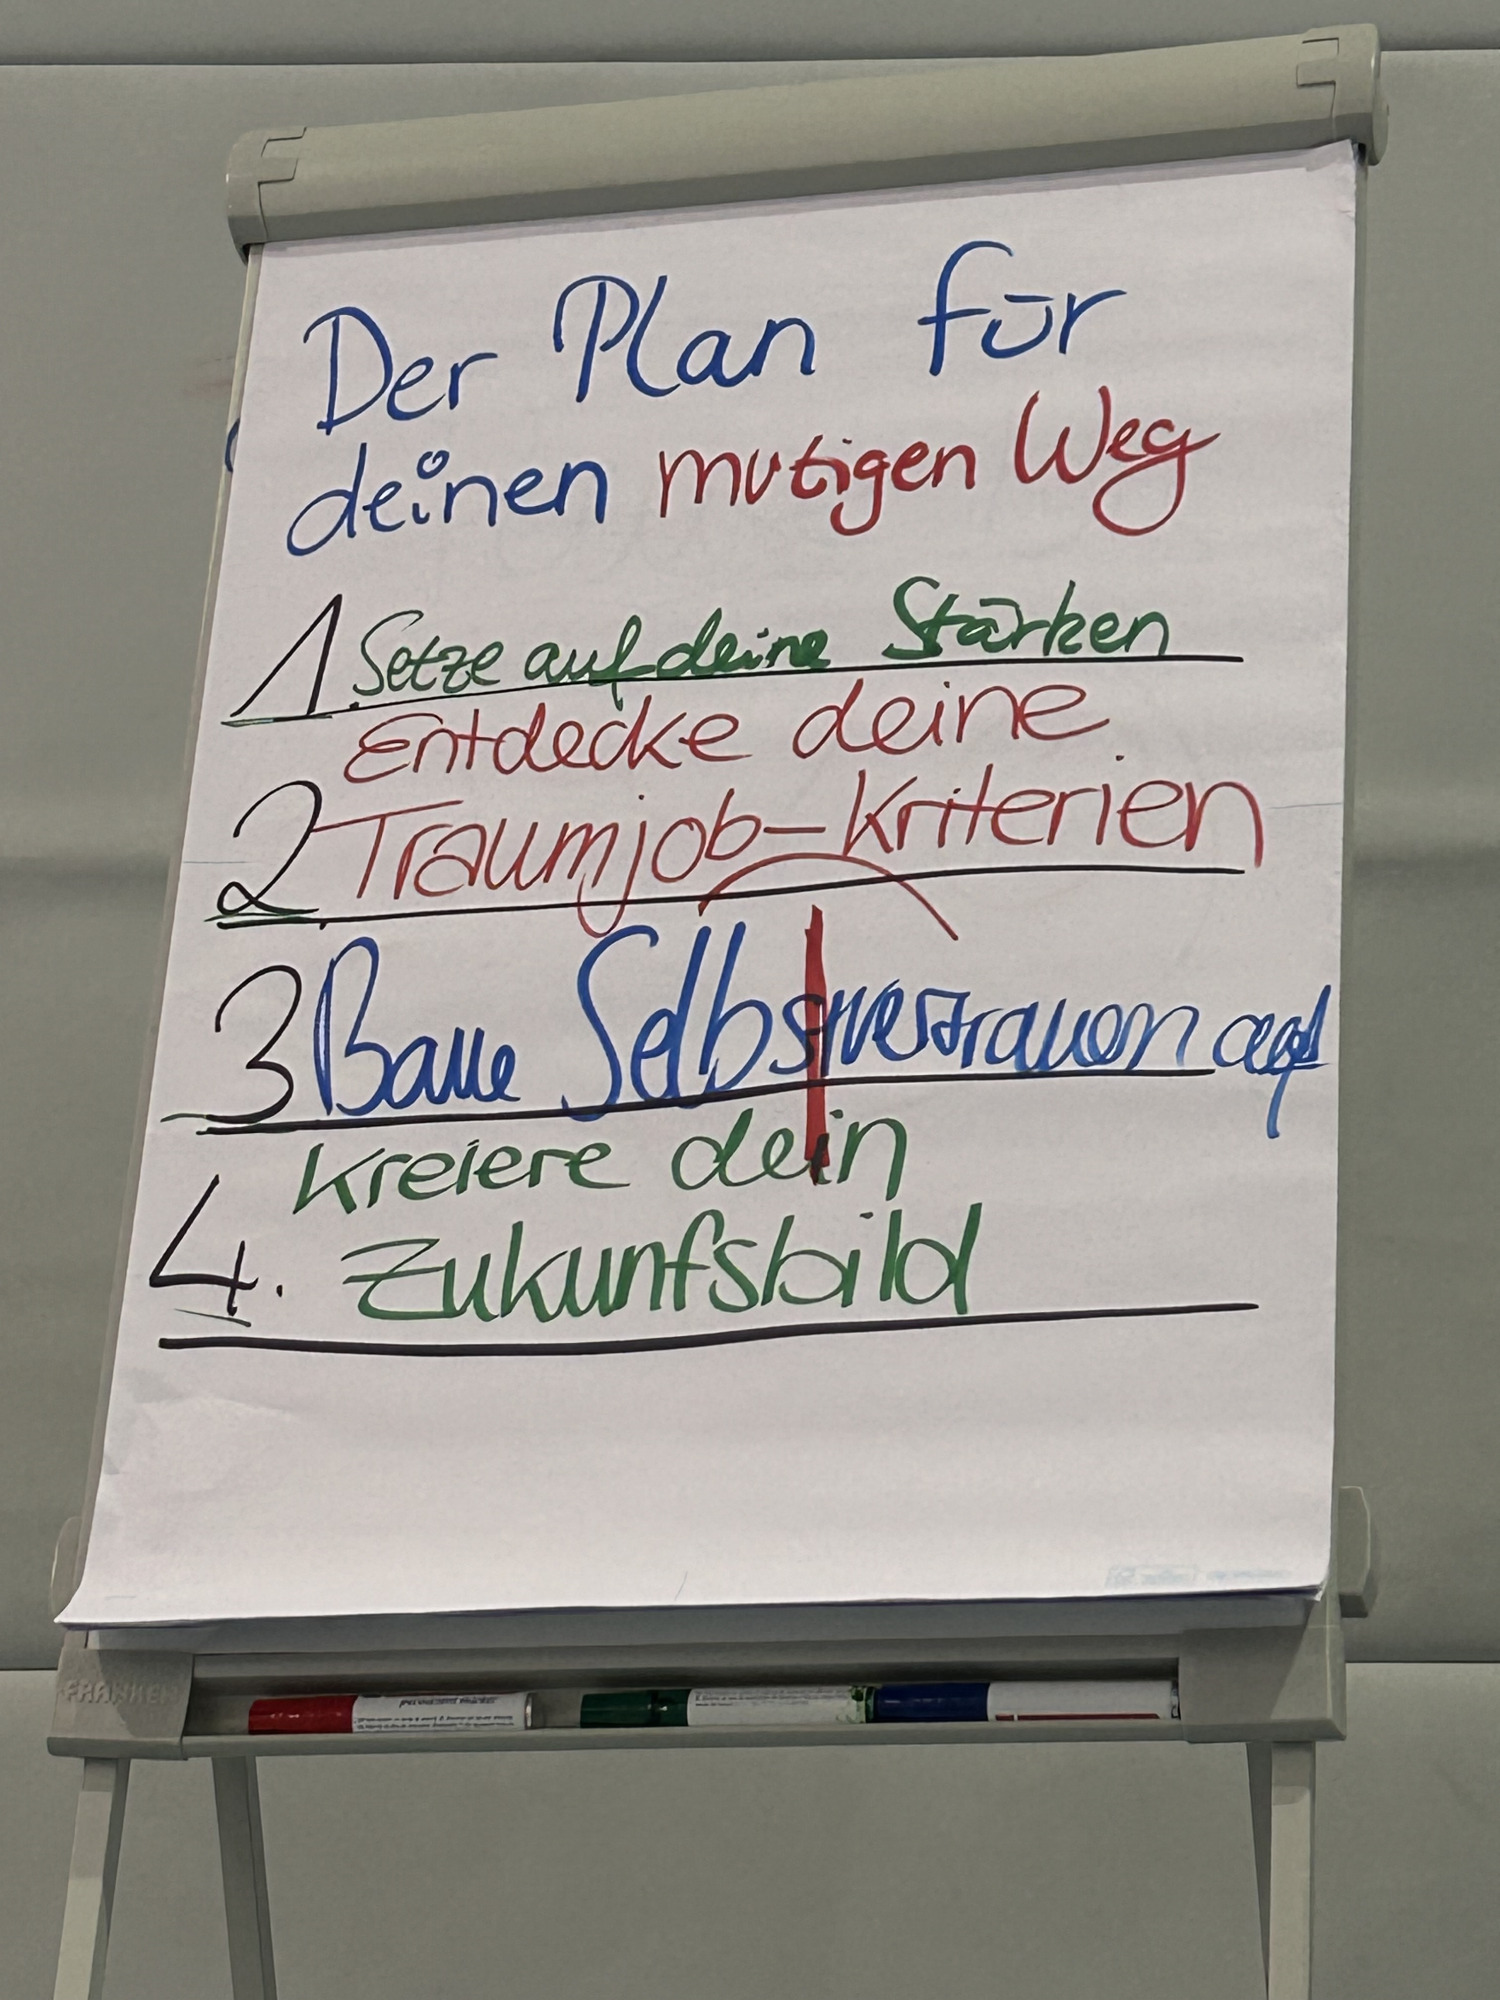 Der Plan für
deinen mutigen Weg
1. Setze auf deine Stärken
Entdecke deine
2. Traumjob-Kriterien
3 Baue Selbstvertrauen auf
Kreiere dein
4. Zukunfsbild
FRANKEN